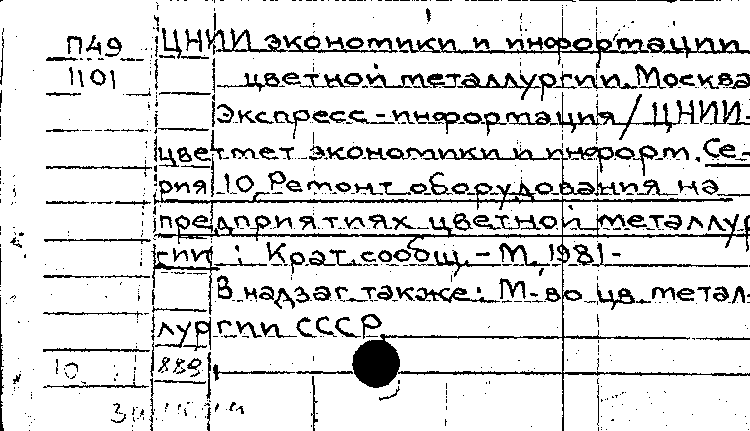 П49 ЦНИИ экономики и информации
1101 цветной металлургии. Москва
Экспресс-информация / ЦНИИ-
цветмет экономики и информ. Се-
рия 10, Ремонт оборудования на
предприятиях цветной металлур
гии : Крат. сообщ. - М, 1981-
В надзаг. также: М-во цв. метал-
лургии СССР
10. 889